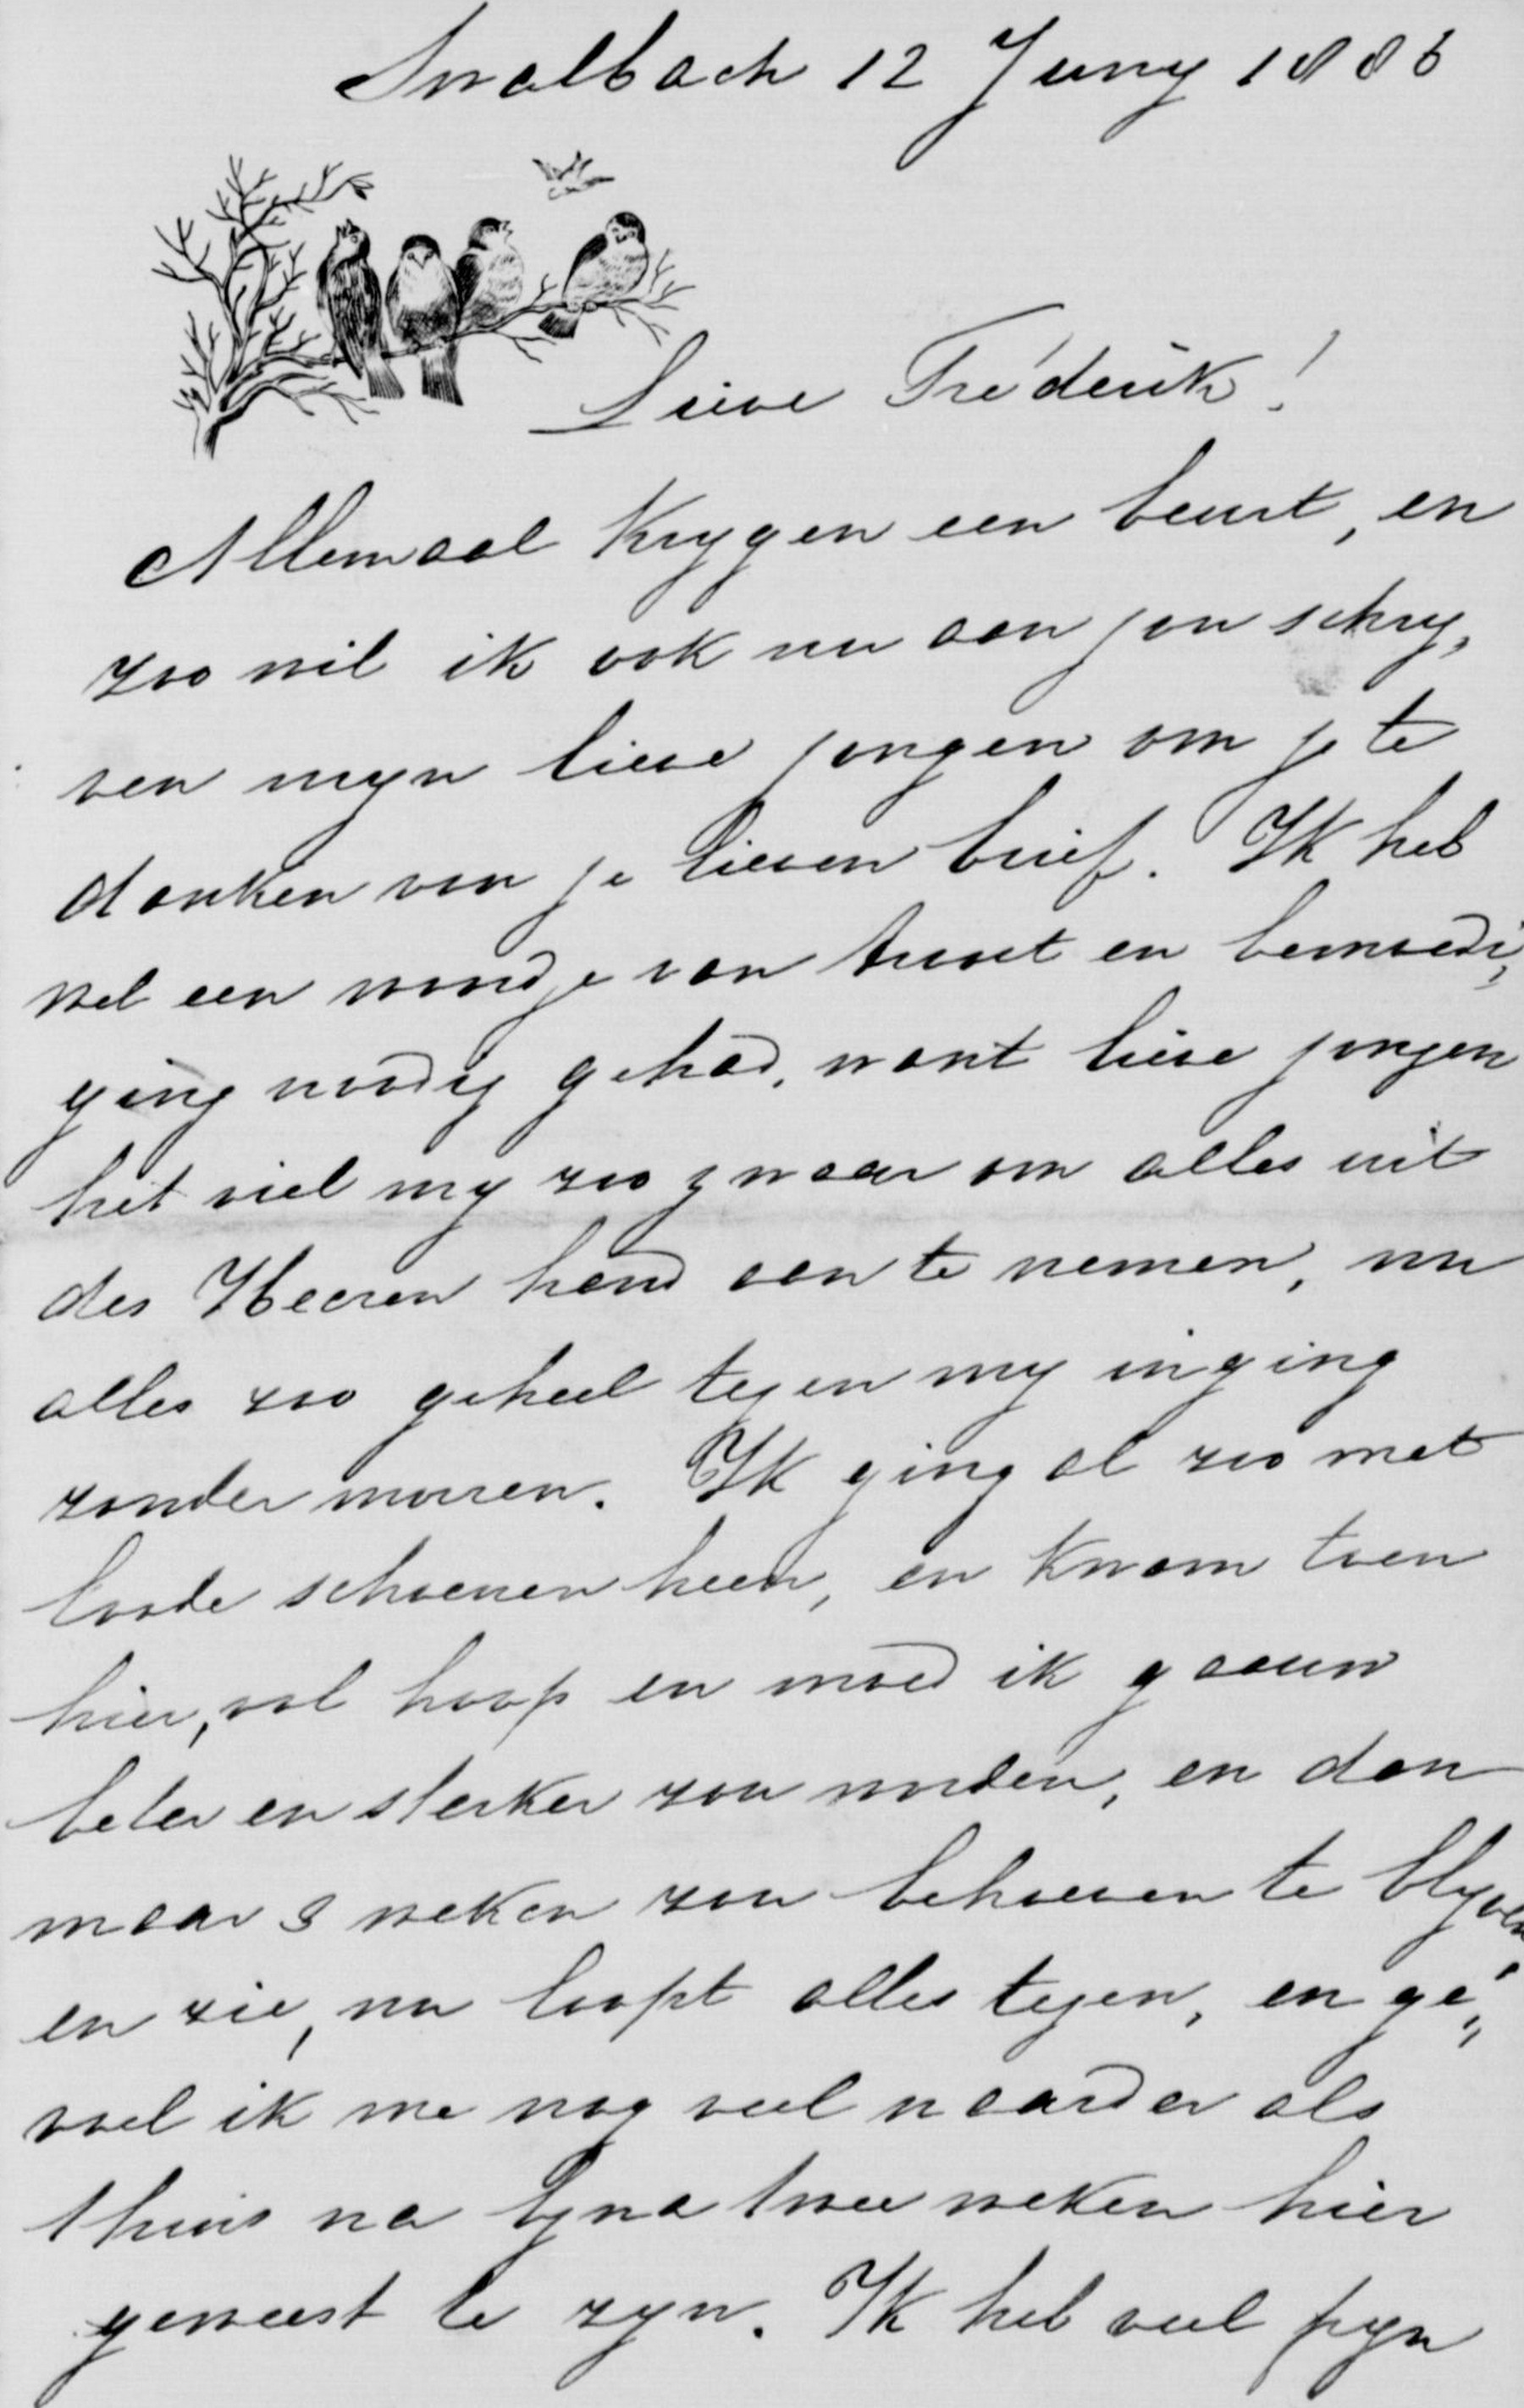 Swalbach 12 Juny 1886
Lieve Fréderik!
Allemaal krygen een beurt, en
zoo wil ik ook nu aan jou schry„
ven myn lieve jongen om je te
danken van je lieven brief. Ik heb
wel een woordje van troost en bemoedi„
ging noodig gehad, want lieve jongen
het viel my zoo zwaar om alles uit
des Heeren hand aan te nemen, nu
alles zoo geheel tegen my inging
zonder morren. Ik ging al zoo met
loode schoenen heen, en kwam toen
hier, vol hoop en moed ik gaauw
beter en sterker zou worden, en dan
maar 3 weken zou behoeven te blyven
en zie, nu loopt alles tegen, en ge„
voel ik me nog veel naarder als
thuis na byna twee weken hier
geweest te zyn. Ik heb veel pyn